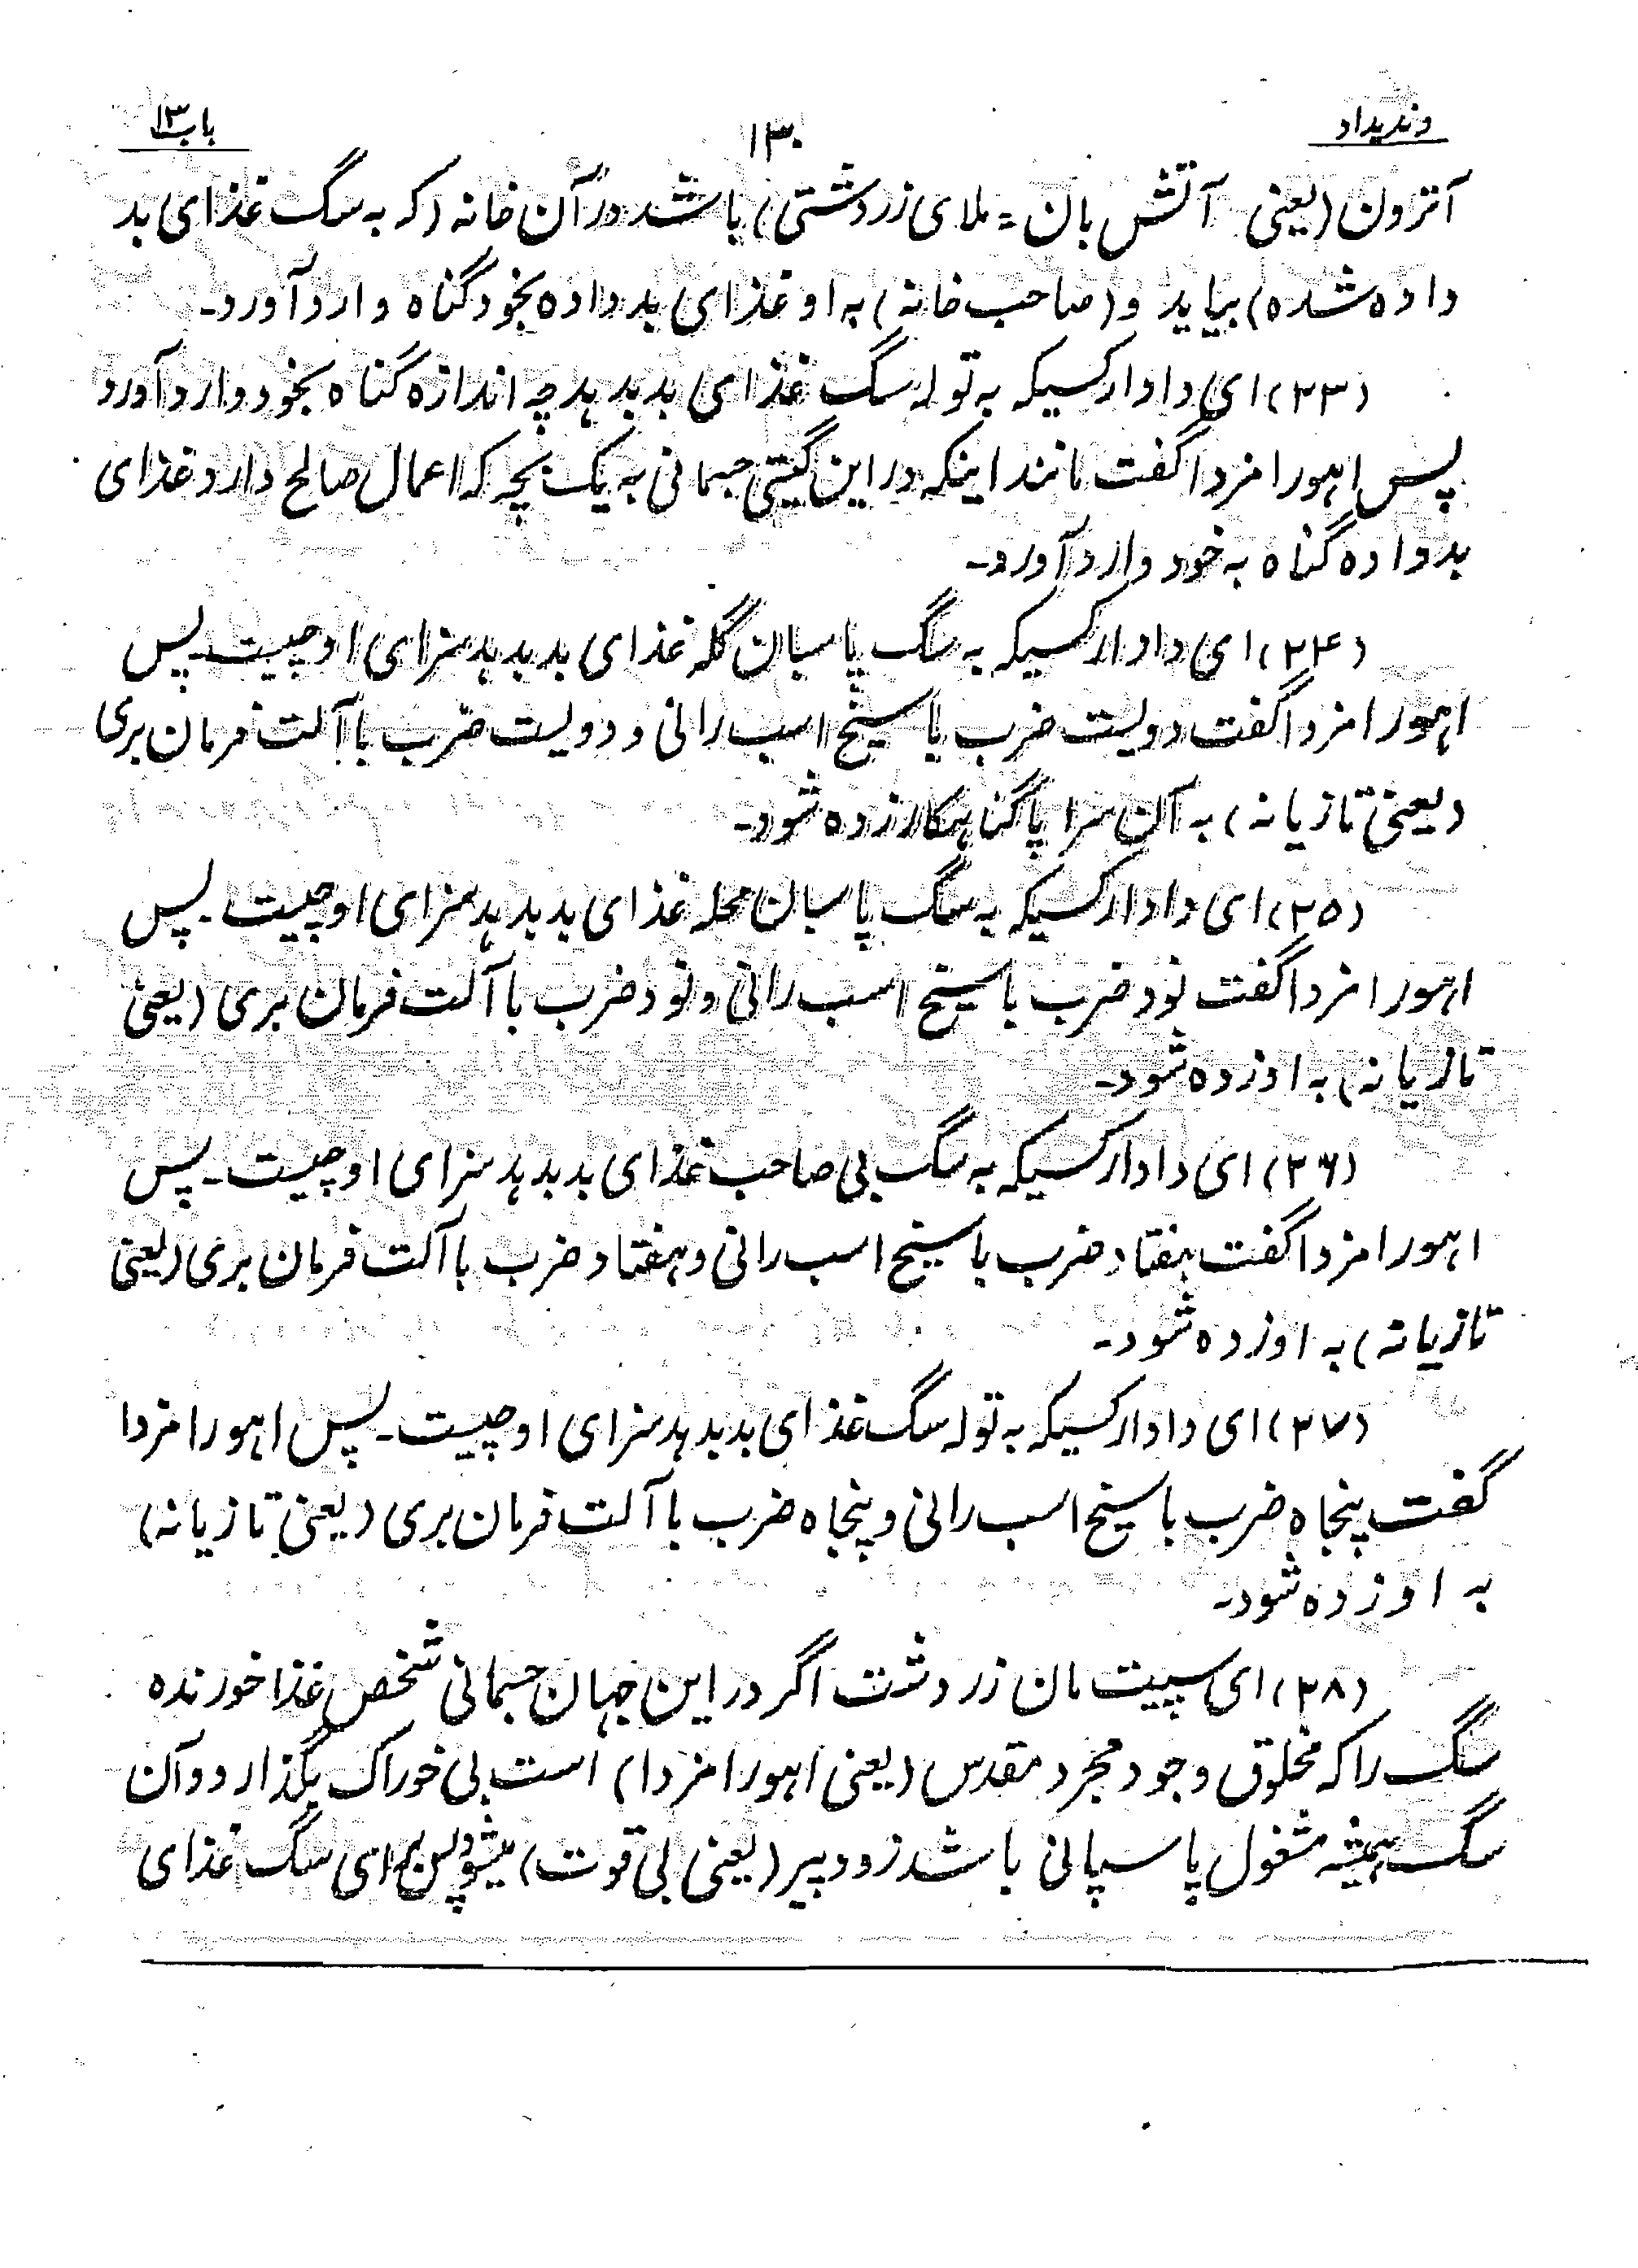 وندیداد
۱۳۰
باب ۱۳
آترون (یعنی آتش بان = ملای زردشتی) باشد در آن خانه (که به سگ غذای بد
داده شده) بیاید و (صاحب خانه) به او غذای بد داده بخود گناه وارد آورد-
(۲۳) ای دادار کسیکه به توله سگ غذای بد بدهد چه اندازه گناه بخود وارد آورد
پس اهورا مزدا گفت مانند اینکه در این گیتی جسمانی به یک بچه که اعمال صالح دارد غذای
بد داده گناه به خود وارد آورد-
(۲۴) ای دادار کسیکه به سگ پاسبان گله غذای بد بدهد سزای او چیست- پس
اهورا مزدا گفت دویست ضرب با سیخ اسب رانی و دویست ضرب با آلت فرمان بری
(یعنی تازیانه) به آن سراپا گناهکار زده شود-
(۲۵) ای دادار کسیکه به سگ پاسبان محله غذای بد بدهد سزای او چیست- پس
اهورا مزدا گفت نود ضرب با سیخ اسب رانی و نود ضرب با آلت فرمان بری (یعنی
تازیانه) به او زده شود-
(۲۶) ای دادار کسیکه به سگ بی صاحب غذای بد بدهد سزای او چیست- پس
اهورا مزدا گفت هفتاد ضرب با سیخ اسب رانی و هفتاد ضرب با آلت فرمان بری (یعنی
تازیانه) به او زده شود-
(۲۷) ای دادار کسیکه به توله سگ غذای بد بدهد سزای او چیست- پس اهورا مزدا
گفت پنجاه ضرب با سیخ اسب رانی و پنجاه ضرب با آلت فرمان بری (یعنی تازیانه)
به او زده شود-
(۲۸) ای سپیت مان زردشت اگر در این جهان جسمانی شخص غذا خورنده
سگ را که مخلوق وجود مجرد مقدس (یعنی اهورا مزدا) است بی خوراک بگذارد و آن
سگ همیشه مشغول پاسپانی باشد زود پیر (یعنی بی قوت) میشود پس برای سگ غذای